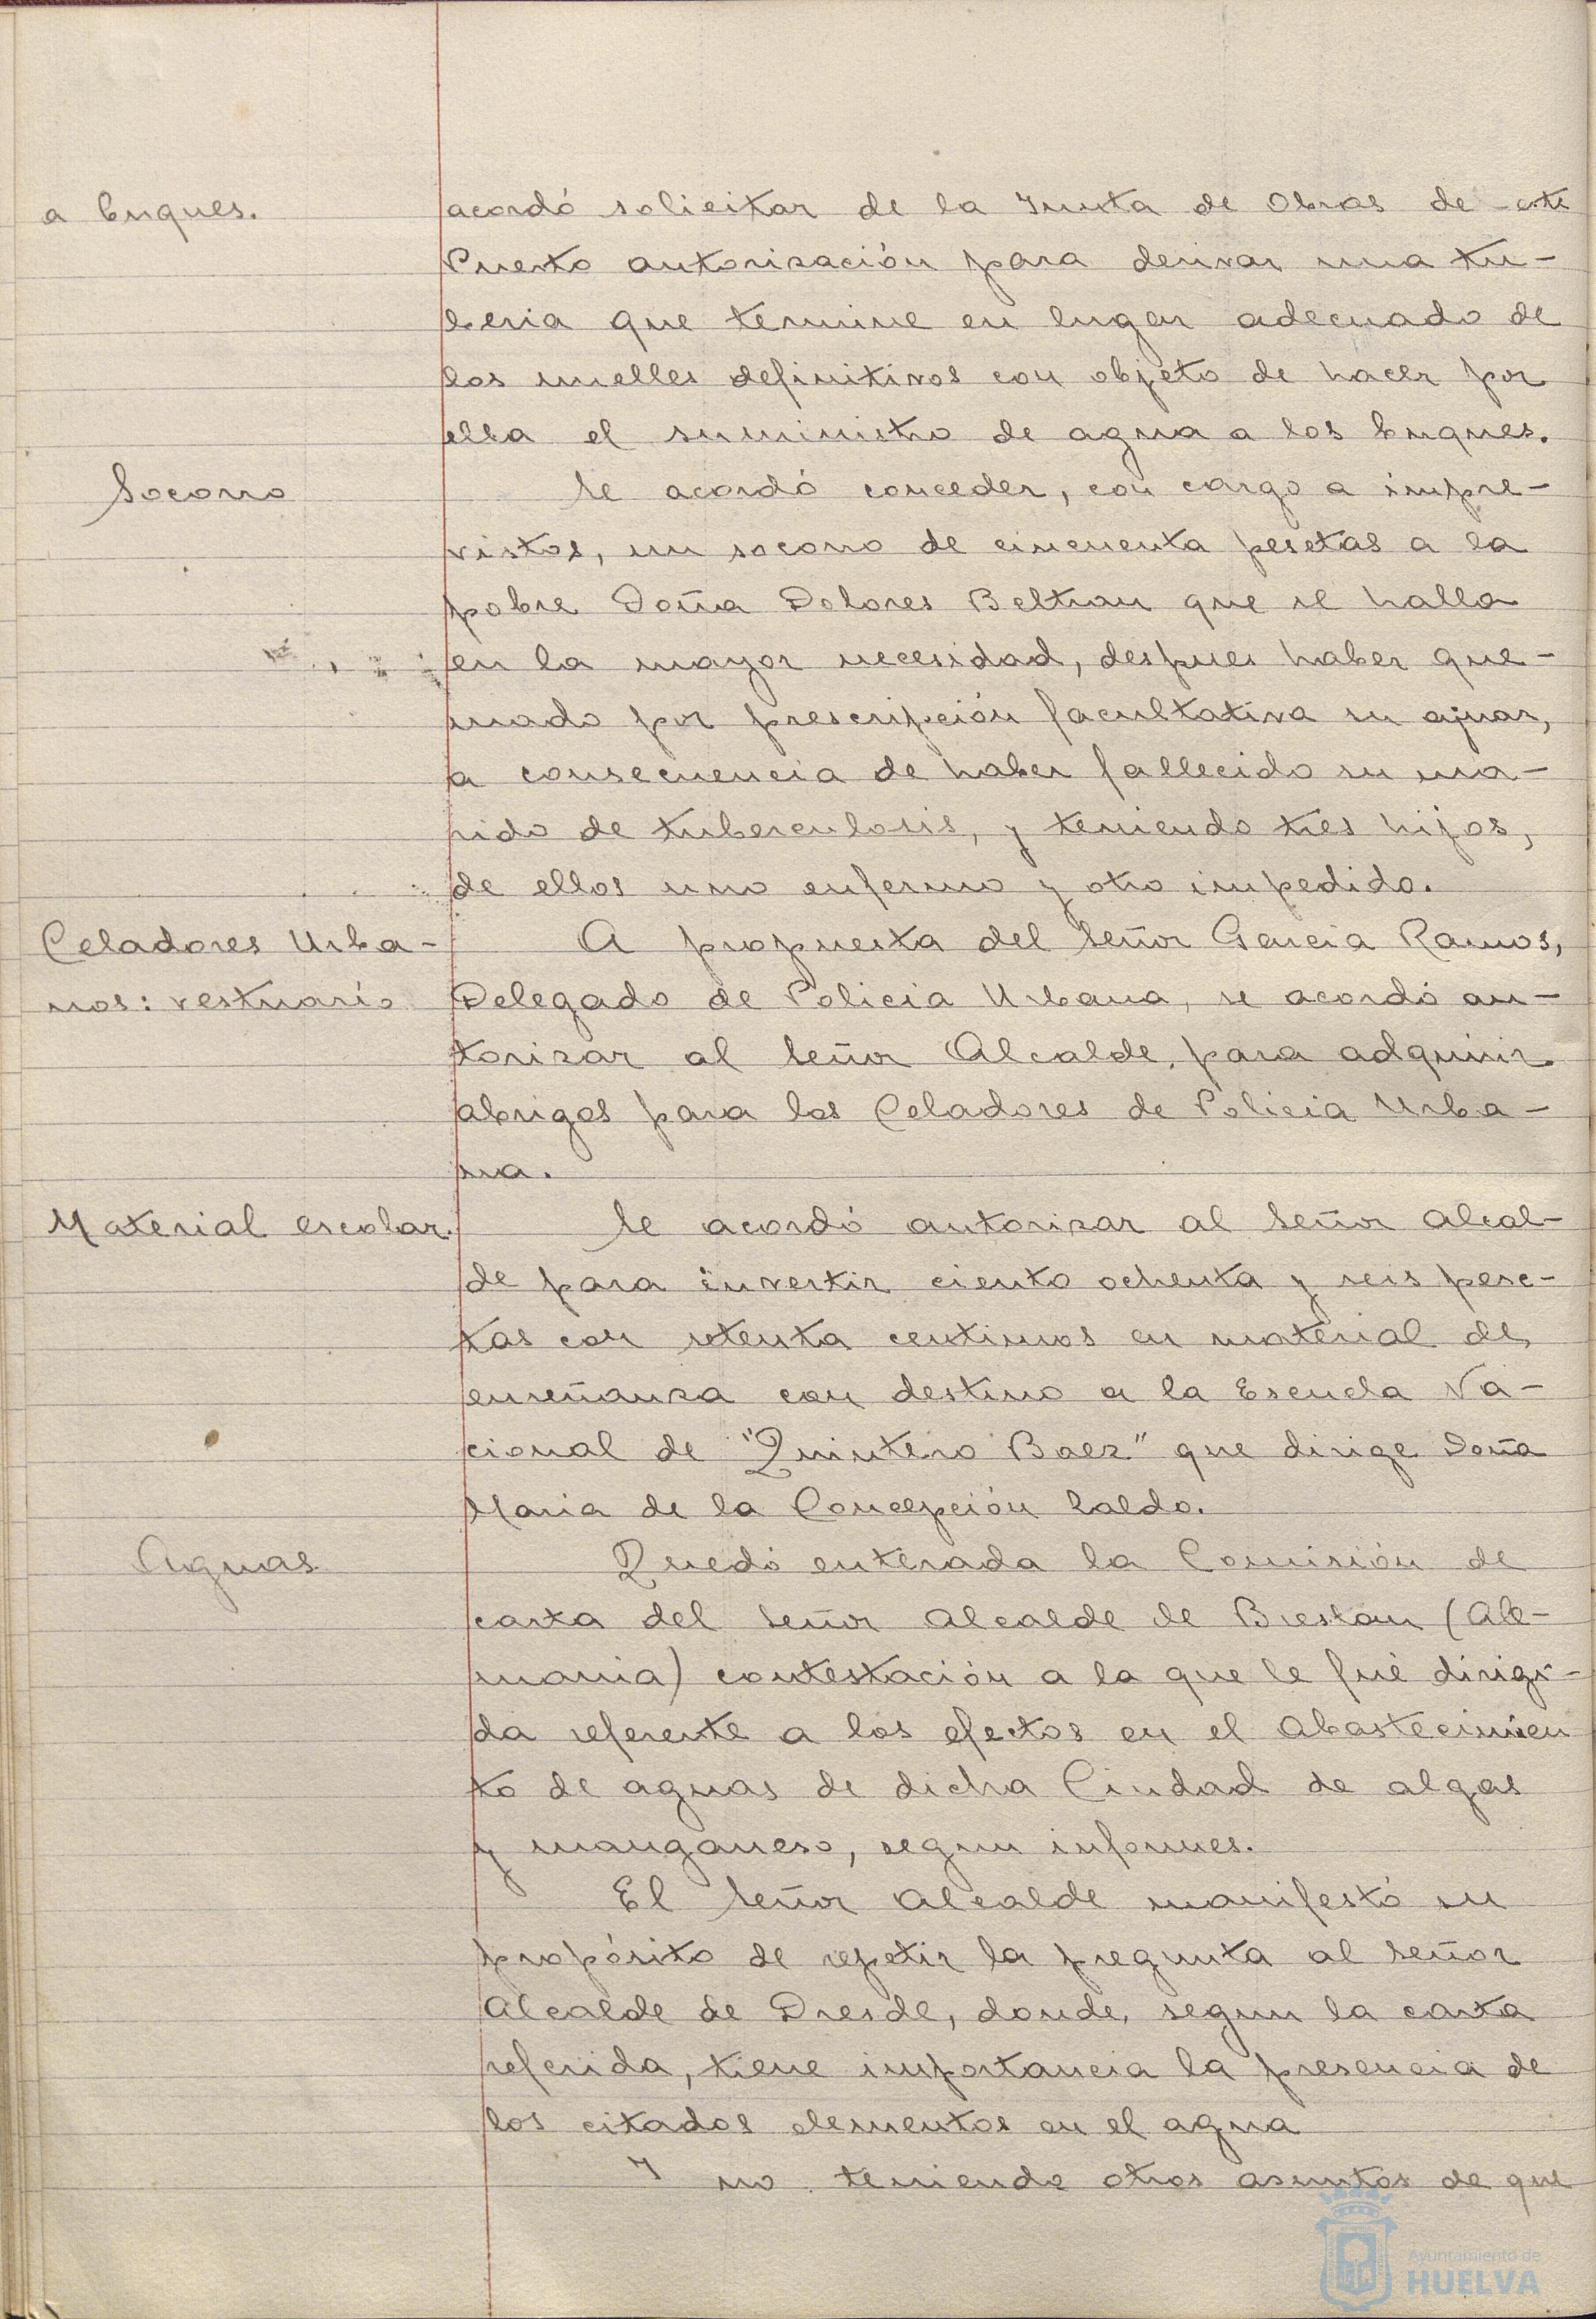 a buques.
acordó solicitar de la Junta de Obras de este
Puerto autorización para derivar una tu-
beria que termine en lugar adecuado de
los muelles definitivos con objeto de hacer por
ella el suministro de agua a los buques.
Socorro
Se acordó conceder, con cargo a impre-
vistos, un socorro de cincuenta pesetas a la
pobre Doña Dolores Beltran que se halla
en la mayor necesidad, despues haber que-
mado por prescripción facultativa su ajuar,
a consecuencia de haber fallecido su ma-
rido de tuberculosis, y teniendo tres hijos,
de ellos uno enfermo y otro impedido.
Celadores Urba-
nos: vestuario
A propuesta del Señor Garcia Ramos,
Delegado de Policia Urbana, se acordó au-
torizar al Señor Alcalde, para adquirir
abrigos para los Celadores de Policia Urba-
na.
Material escolar.
Se acordó autorizar al Señor Alcal-
de para invertir ciento ochenta y seis pese-
tas con setenta centimos en material de
enseñanza con destino a la Escuela Na-
cional de "Quintero Baez" que dirige Doña
Maria de la Concepción Saldo.
Aguas
Quedó enterada la Comisión de
carta del Señor Alcalde de Breslau (Ale-
mania) contestación a la que le fué dirigi-
da referente a los efectos en el abastecimien
to de aguas de dicha Ciudad de algas
y manganeso, segun informes.
El Señor Alcalde manifestó su
propósito de repetir la pregunta al Señor
Alcalde de Dresde, donde, segun la carta
referida, tiene importancia la presencia de
los citados elementos en el agua
Y no teniendo otros asuntos de que
Ayuntamiento de
HUELVA